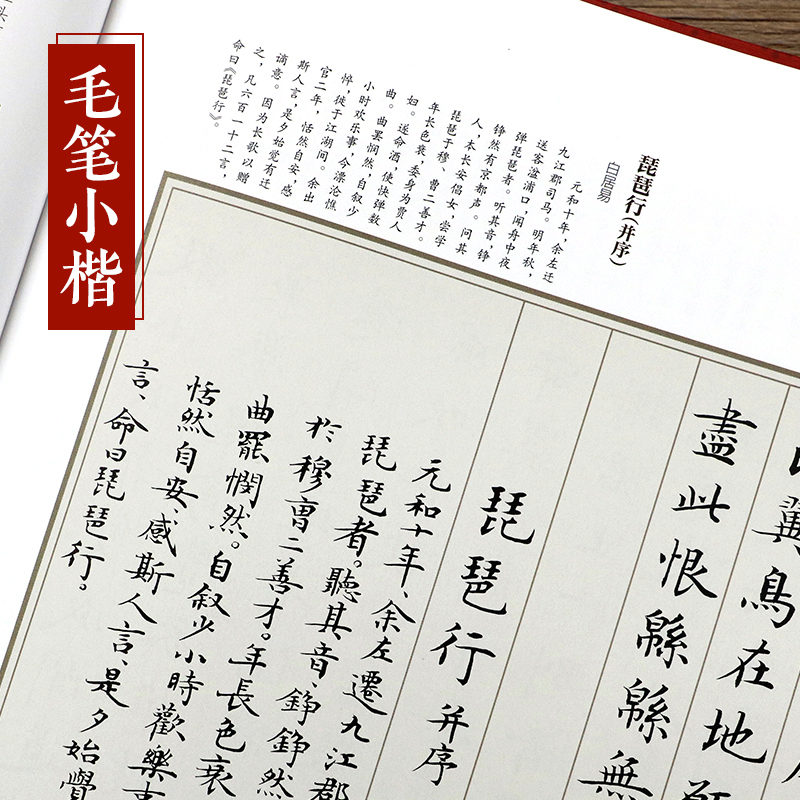 毛笔小楷
琵琶行(并序)
白居易
元和十年，余左迁
九江郡司马。明年秋，
送客湓浦口，闻舟中夜
弹琵琶者。听其音，铮
铮然有京都声。问其
人，本长安倡女，尝学
琵琶于穆、曹二善才。
年长色衰，委身为贾人
妇。遂命酒，使快弹数
曲。曲罢悯然，自叙少
小时欢乐事，今漂沦憔
悴，徙于江湖间。余出
官二年，恬然自安，感
斯人言，是夕始觉有迁
谪意。因为长歌以赠
之，凡六百一十二言，
命曰《琵琶行》。
翼鳥在地
盡此恨緜緜無
琵琶行并序
元和十年、余左遷九江郡
琵琶者。聽其音、錚錚然
於穆曹二善才。年長色衰
曲罷憫然。自叙少小時歡樂
恬然自安、感斯人言、是夕始覺
言、命曰琵琶行。